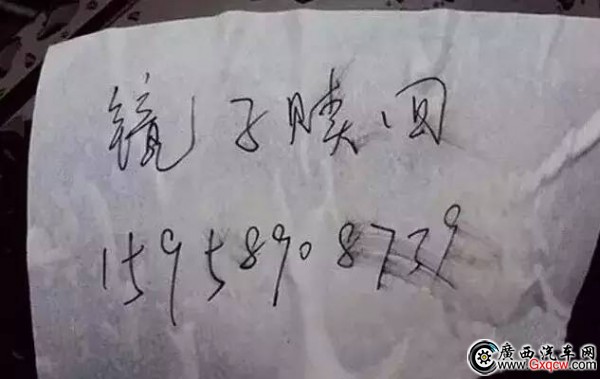 镜子赎回
15958908739
廣西汽车网
www.Gxqcw.com